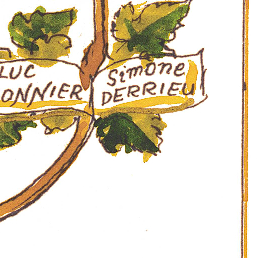 LUC
ONNIER
Simone
DERRIEU